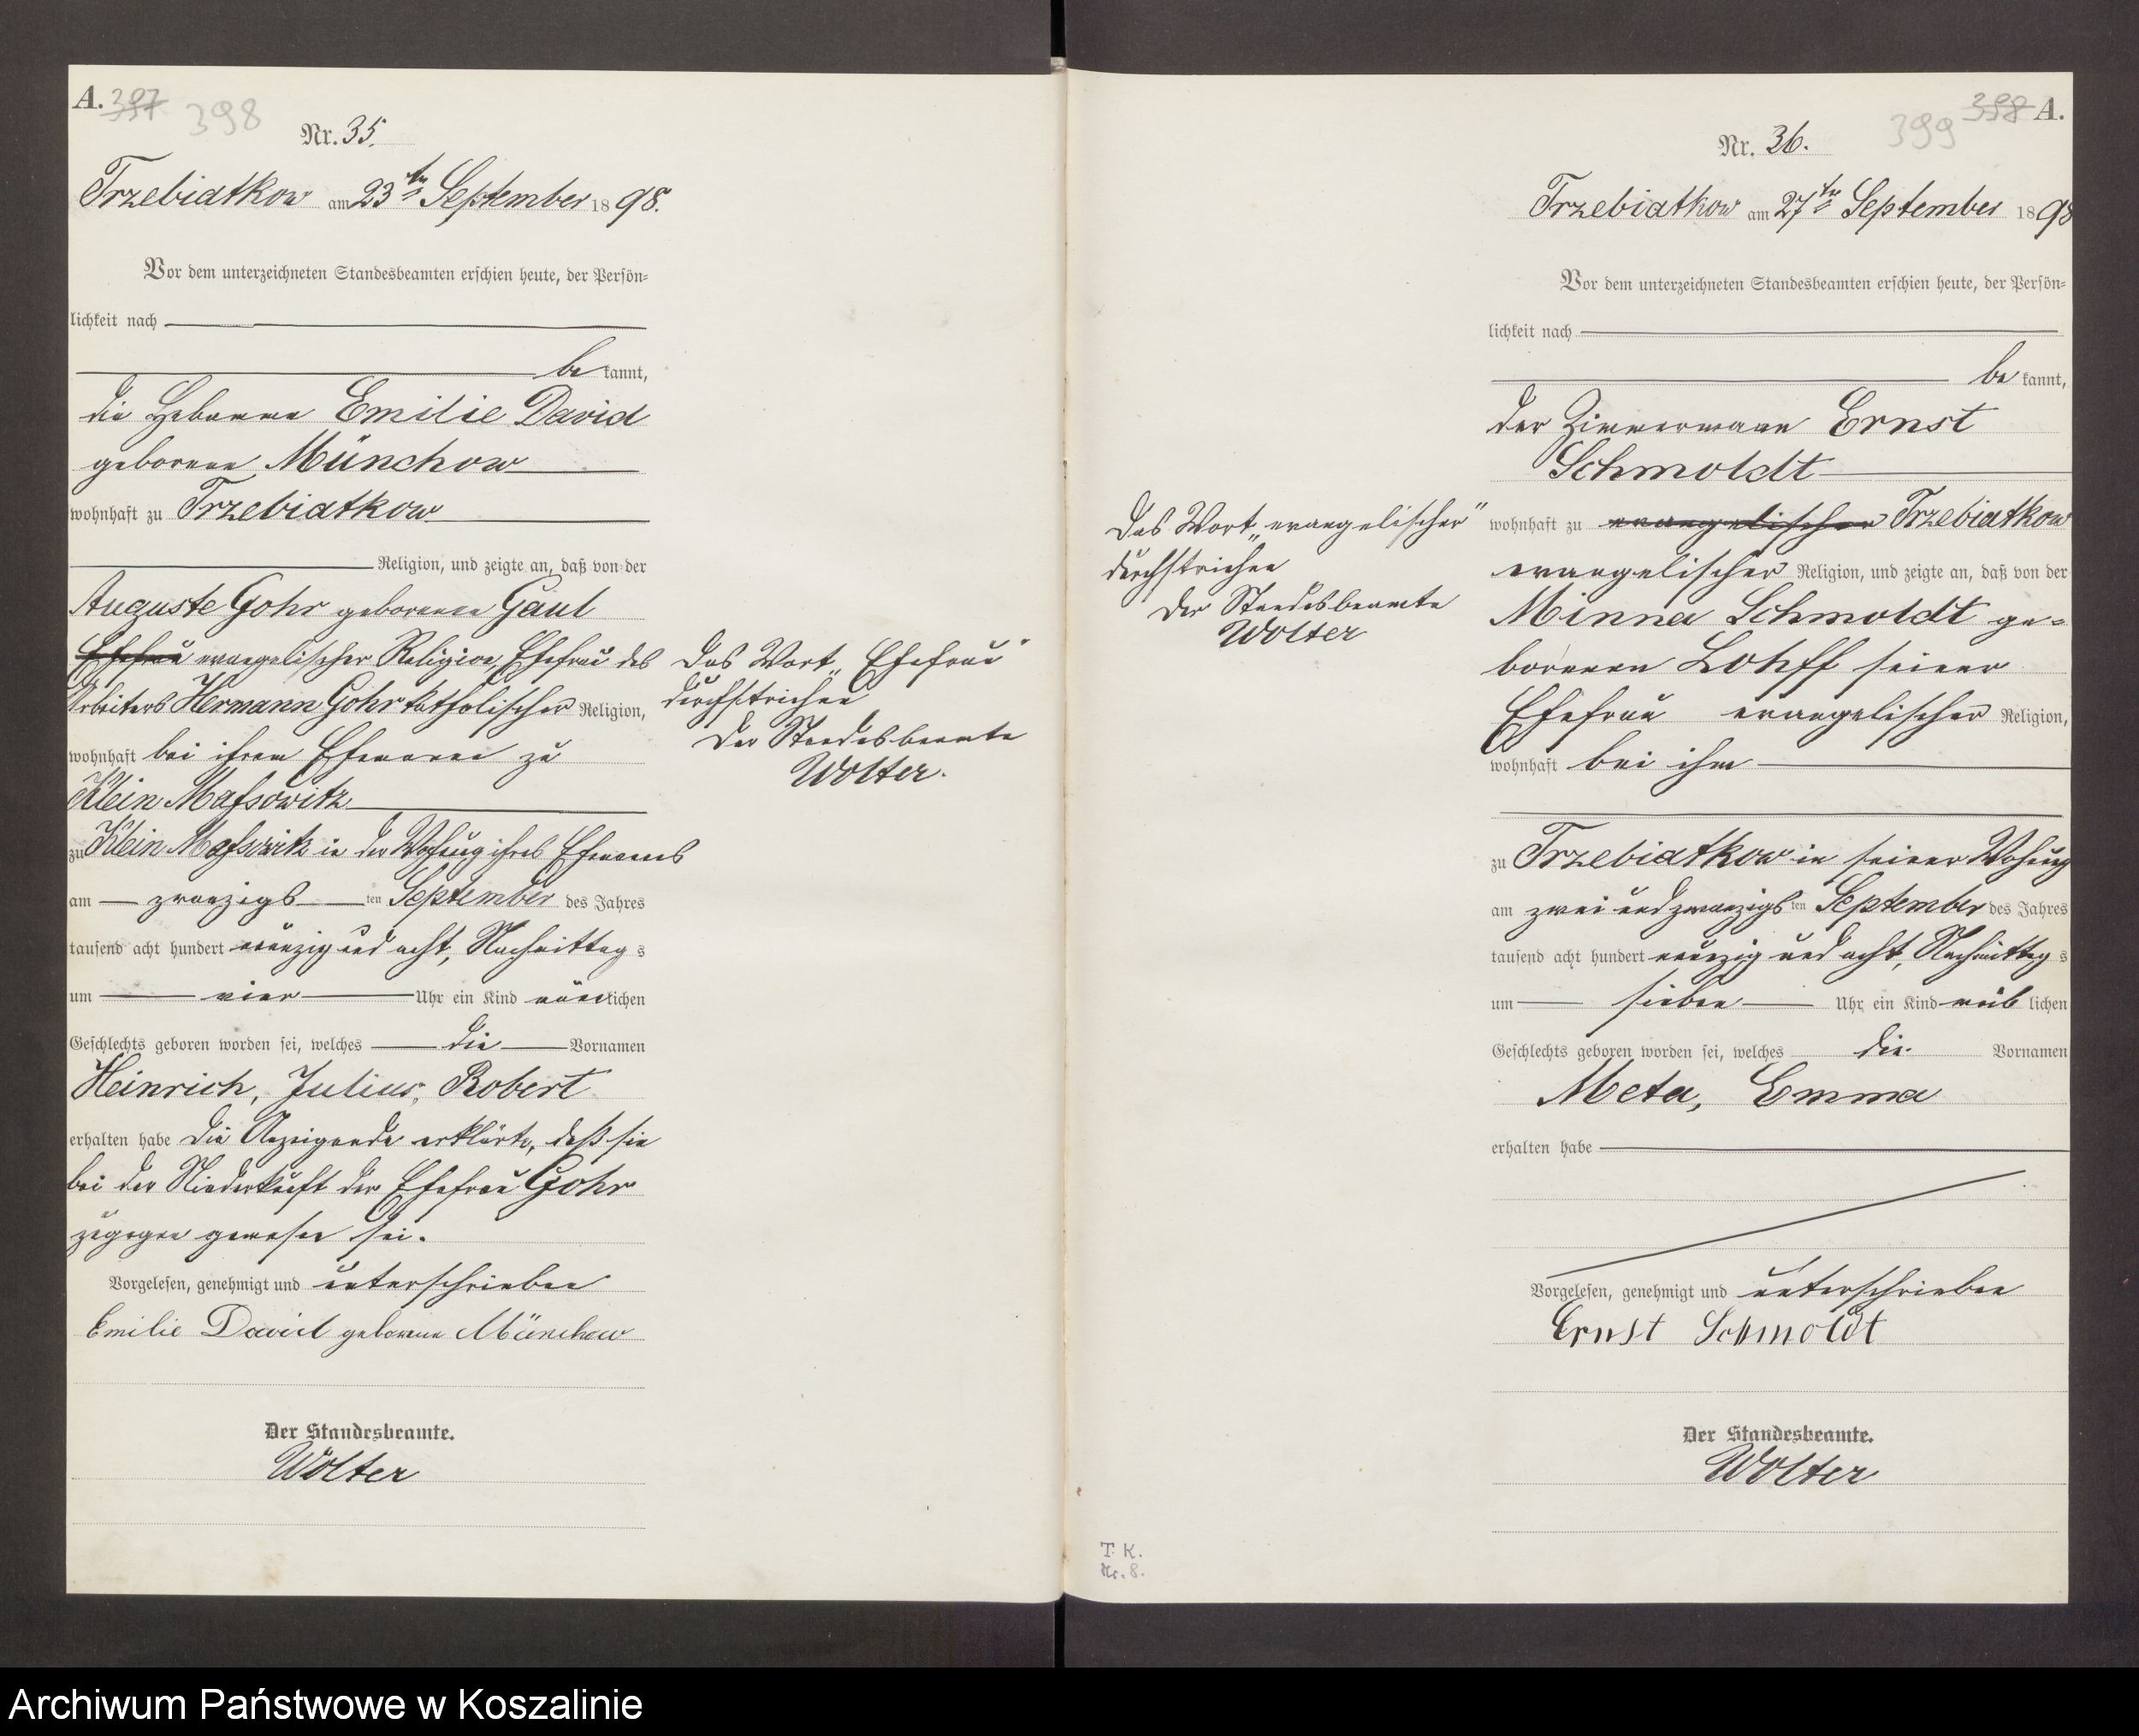 A. 397 398
Nr. 35.
Trzebiatkow am 23ten September 1898.
Vor dem unterzeichneten Standesbeamten erschien heute, der Persön-
lichkeit nach
be kannt,
die Hebamme Emilie David
geborene Münchow
wohnhaft zu Trzebiatkow
Religion, und zeigte an, daß von der
Auguste Gohr geborenen Gaul
Ehefrau evangelischer Religion, Ehefrau des
Arbeiters Hermann Gohr katholischer Religion,
wohnhaft bei ihrem Ehemanne zu
Klein Massowitz
zu Klein Massowitz in der Wohnung ihres Ehemannes
am zwanzigsten September des Jahres
tausend acht hundert neunzig und acht, Nachmittags
um vier Uhr ein Kind männlichen
Geschlechts geboren worden sei, welches die Vornamen
Heinrich, Julius, Robert
erhalten habe Die Anzeigende erklärte, daß sie
bei der Niederkunft der Ehefrau Gohr
zugegen gewesen sei.
Vorgelesen, genehmigt und unterschrieben
Emilie David geborene Münchow
Der Standesbeamte.
Wolter
Das Wort „Ehefrau"
durchstrichen
Der Standesbeamte
Wolter.
398 A.
399
Nr. 36.
Trzebiatkow am 27ten September 1898
Vor dem unterzeichneten Standesbeamten erschien heute, der Persön-
lichkeit nach
be kannt,
der Zimmermann Ernst
Schmoldt
wohnhaft zu evangelischer Trzebiatkow
evangelischer Religion, und zeigte an, daß von der
Minna Schmoldt ge-
borenen Lohff seiner
Ehefrau evangelischer Religion,
wohnhaft bei ihm
zu Trzebiatkow in seiner Wohnung
am zwei und zwanzigsten September des Jahres
tausend acht hundert neunzig und acht, Nachmittags
um sieben Uhr ein Kind weiblichen
Geschlechts geboren worden sei, welches die Vornamen
Meta, Emma
erhalten habe
Vorgelesen, genehmigt und unterschrieben
Ernst Schmoldt
Der Standesbeamte.
Wolter
Das Wort „evangelischer"
durchstrichen
Der Standesbeamte
Wolter
T. K.
Nr. 8.
Archiwum Państwowe w Koszalinie